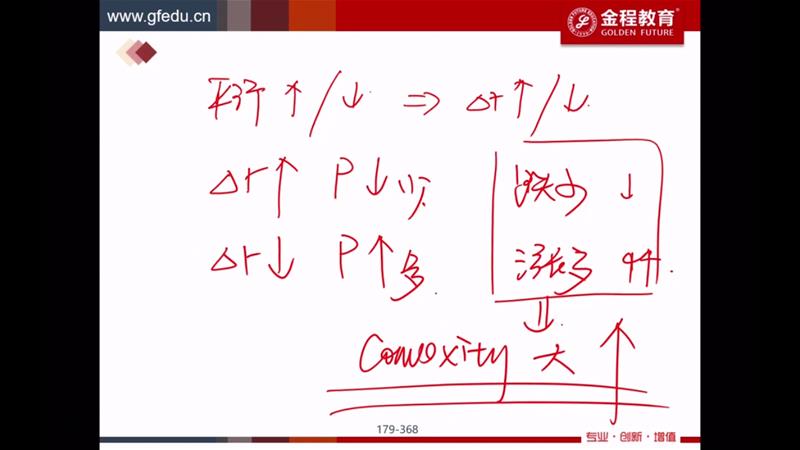 www.gfedu.cn
金程教育
GOLDEN FUTURE
平行 ↑/↓ ⇒ Δr↑/↓
Δr↑ P↓少 跌少 ↓
Δr↓ P↑多 涨多
Convexity 大 ↑
179-368
专业·创新·增值